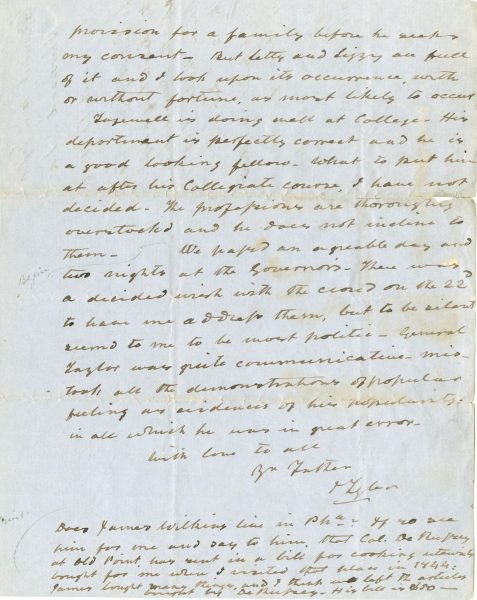 provision for a family before he seeks
my consent - But Letty and Lizzy are full
of it and I look upon its occurrence, with
or without fortune, as most likely to occur
Tazewell is doing well at College - His
department is perfectly correct and he is
a good looking fellow - What to put him
at after his Collegiate course, I have not
decided - The professions are thoroughly
overstocked and he does not incline to
them - We passed an agreable day and
Begin
two nights at the Governor's - There was
a decided wish with the crowd on the 22d
to have me address them, but to be silent
seemd to me to be most politic - General
Taylor was quite communicative - mis-
took all the demonstrations of popular
feeling as evidences of his popularity:
in all which he was in great error -
With love to all
Yr Father
J Tyler
Does James Wilkins live in Pha: If so see
him for me and say to him, that Col. De Russey
at Old Point, has sent in a bill for cooking utensils
bought for me when I visited that place in 1844:
James bought many things, and I think we left the articles
bought by De Russey - His bill is $80 -